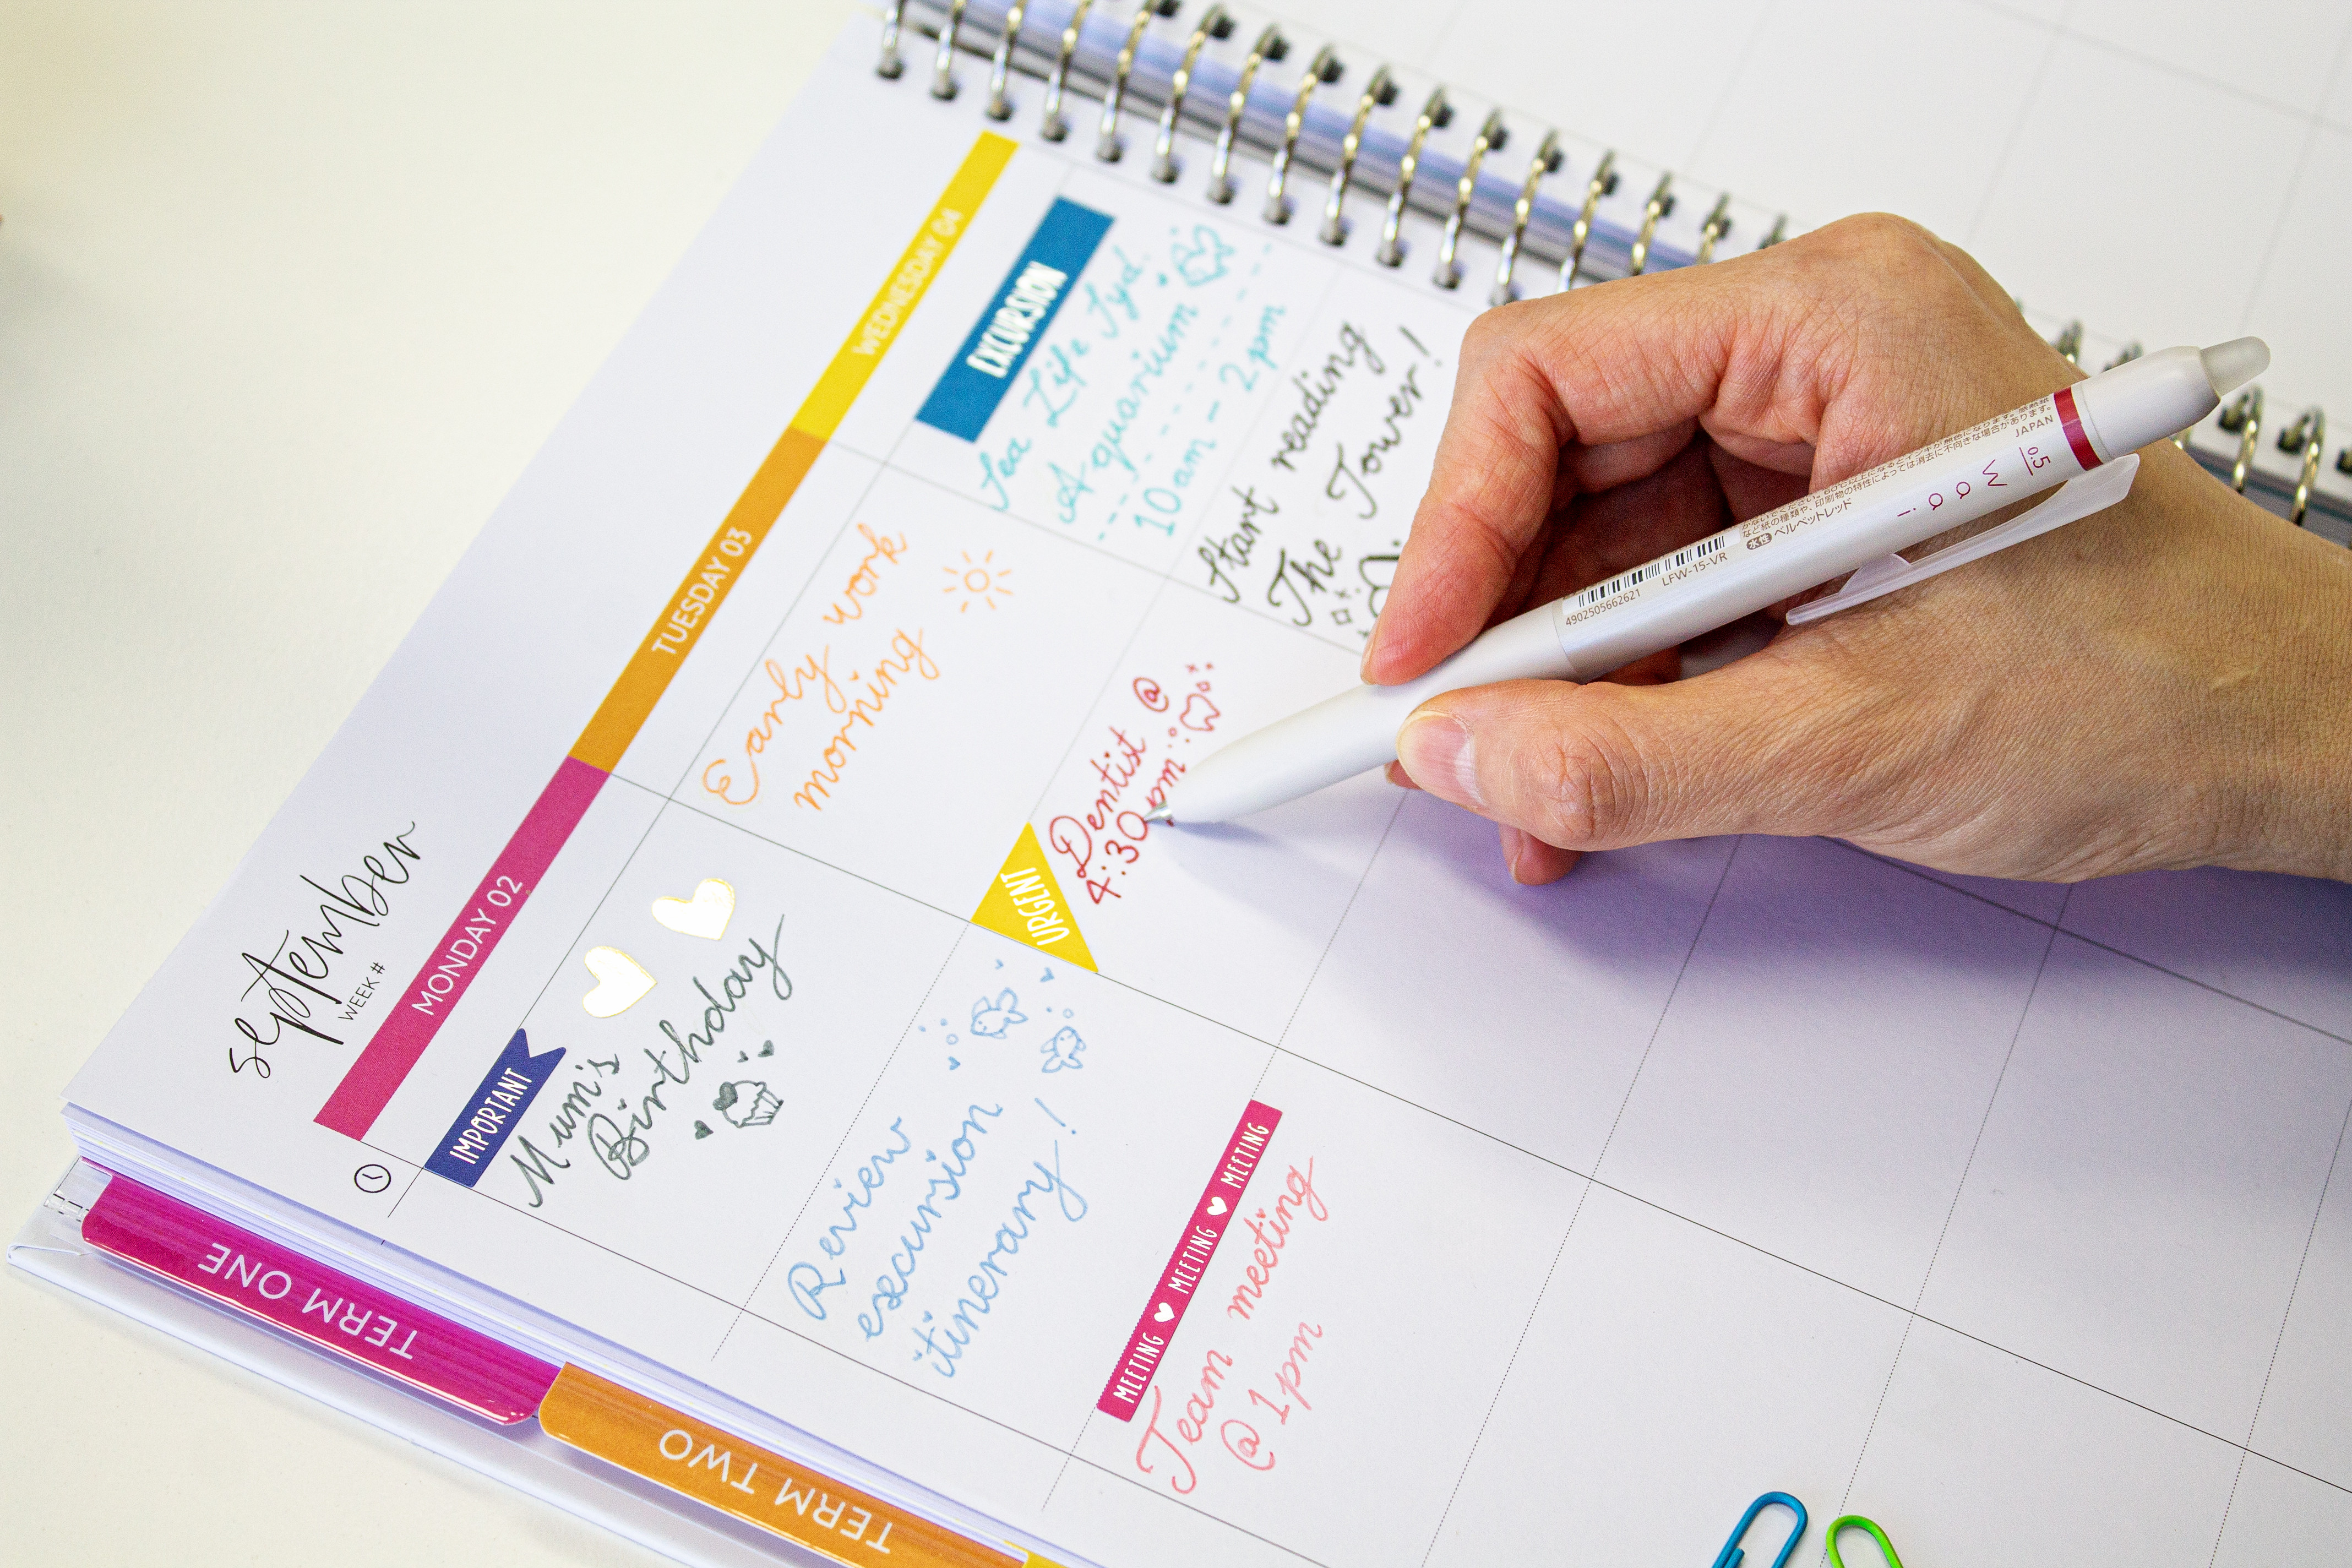 september
WEEK #
MONDAY 02
TUESDAY 03
WEDNESDAY 04
IMPORTANT
Mum's
Birthday
Early work
morning
EXCURSION
Sea Life Syd.
Aquarium
10am - 2pm
Review
excursion
itinerary!
URGENT
Dentist @
4:30pm
Start reading
The Tower!
MEETING MEETING MEETING
Team meeting
@ 1pm
TERM ONE
TERM TWO
waai
0.5
JAPAN
水性 ベルベットレッド
LFW-15-VR
4902505662621